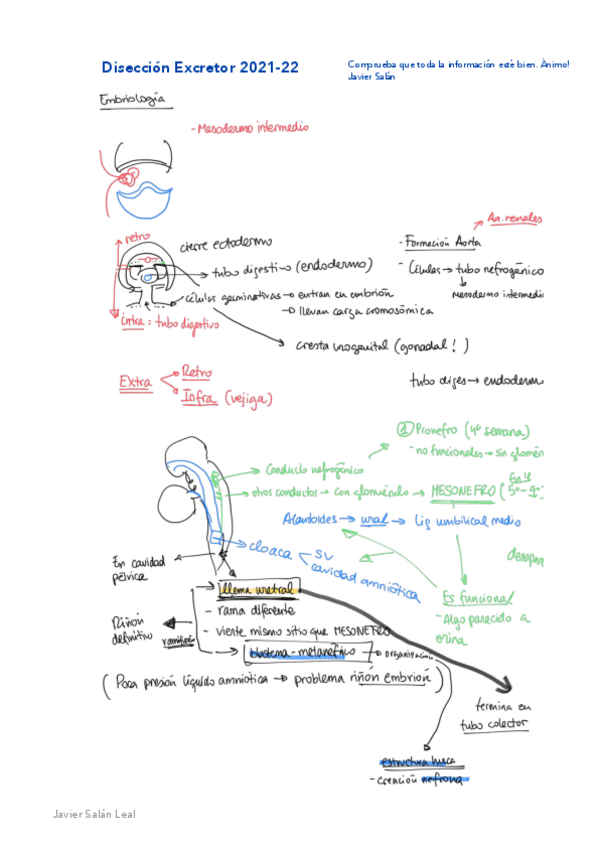 Disección Excretor 2021-22
Comprueba que toda la información esté bien. Ànimo!
Javier Salán
Embriología
- Mesodermo intermedio
An. renales
retro
cierre ectodermo
- Formación Aorta
tubo digestivo (endodermo)
- Células → tubo nefrogénico
células germinativas → entran en embrión
mesodermo intermedi
→ llevan carga cromosómica
intra = tubo digestivo
cresta urogenital (gonadal! )
tubo diges → endoderm
Extra
Retro
Infra (vejiga)
① Pronefro (4ª semana)
- no funcionales → sin glomér
conducto nefrogénico
otros conductos → con glomérulo → MESONEFRO
Alantoides → → lig umbilical medio
cloaca
SV
cavidad amniótica
desapar
En cavidad
pélvica
Yema uretral
Es funcional
- Algo parecido a
orina
- rama diferente
Riñón
definitivo
- viente mismo sitio que MESONEFRO
blastema-metanéfrico → organización
(Poca presión líquido amniótico → problema riñón embrión)
termina en
tubo colector
estructura hueca
- creación nefrona
Javier Salán Leal